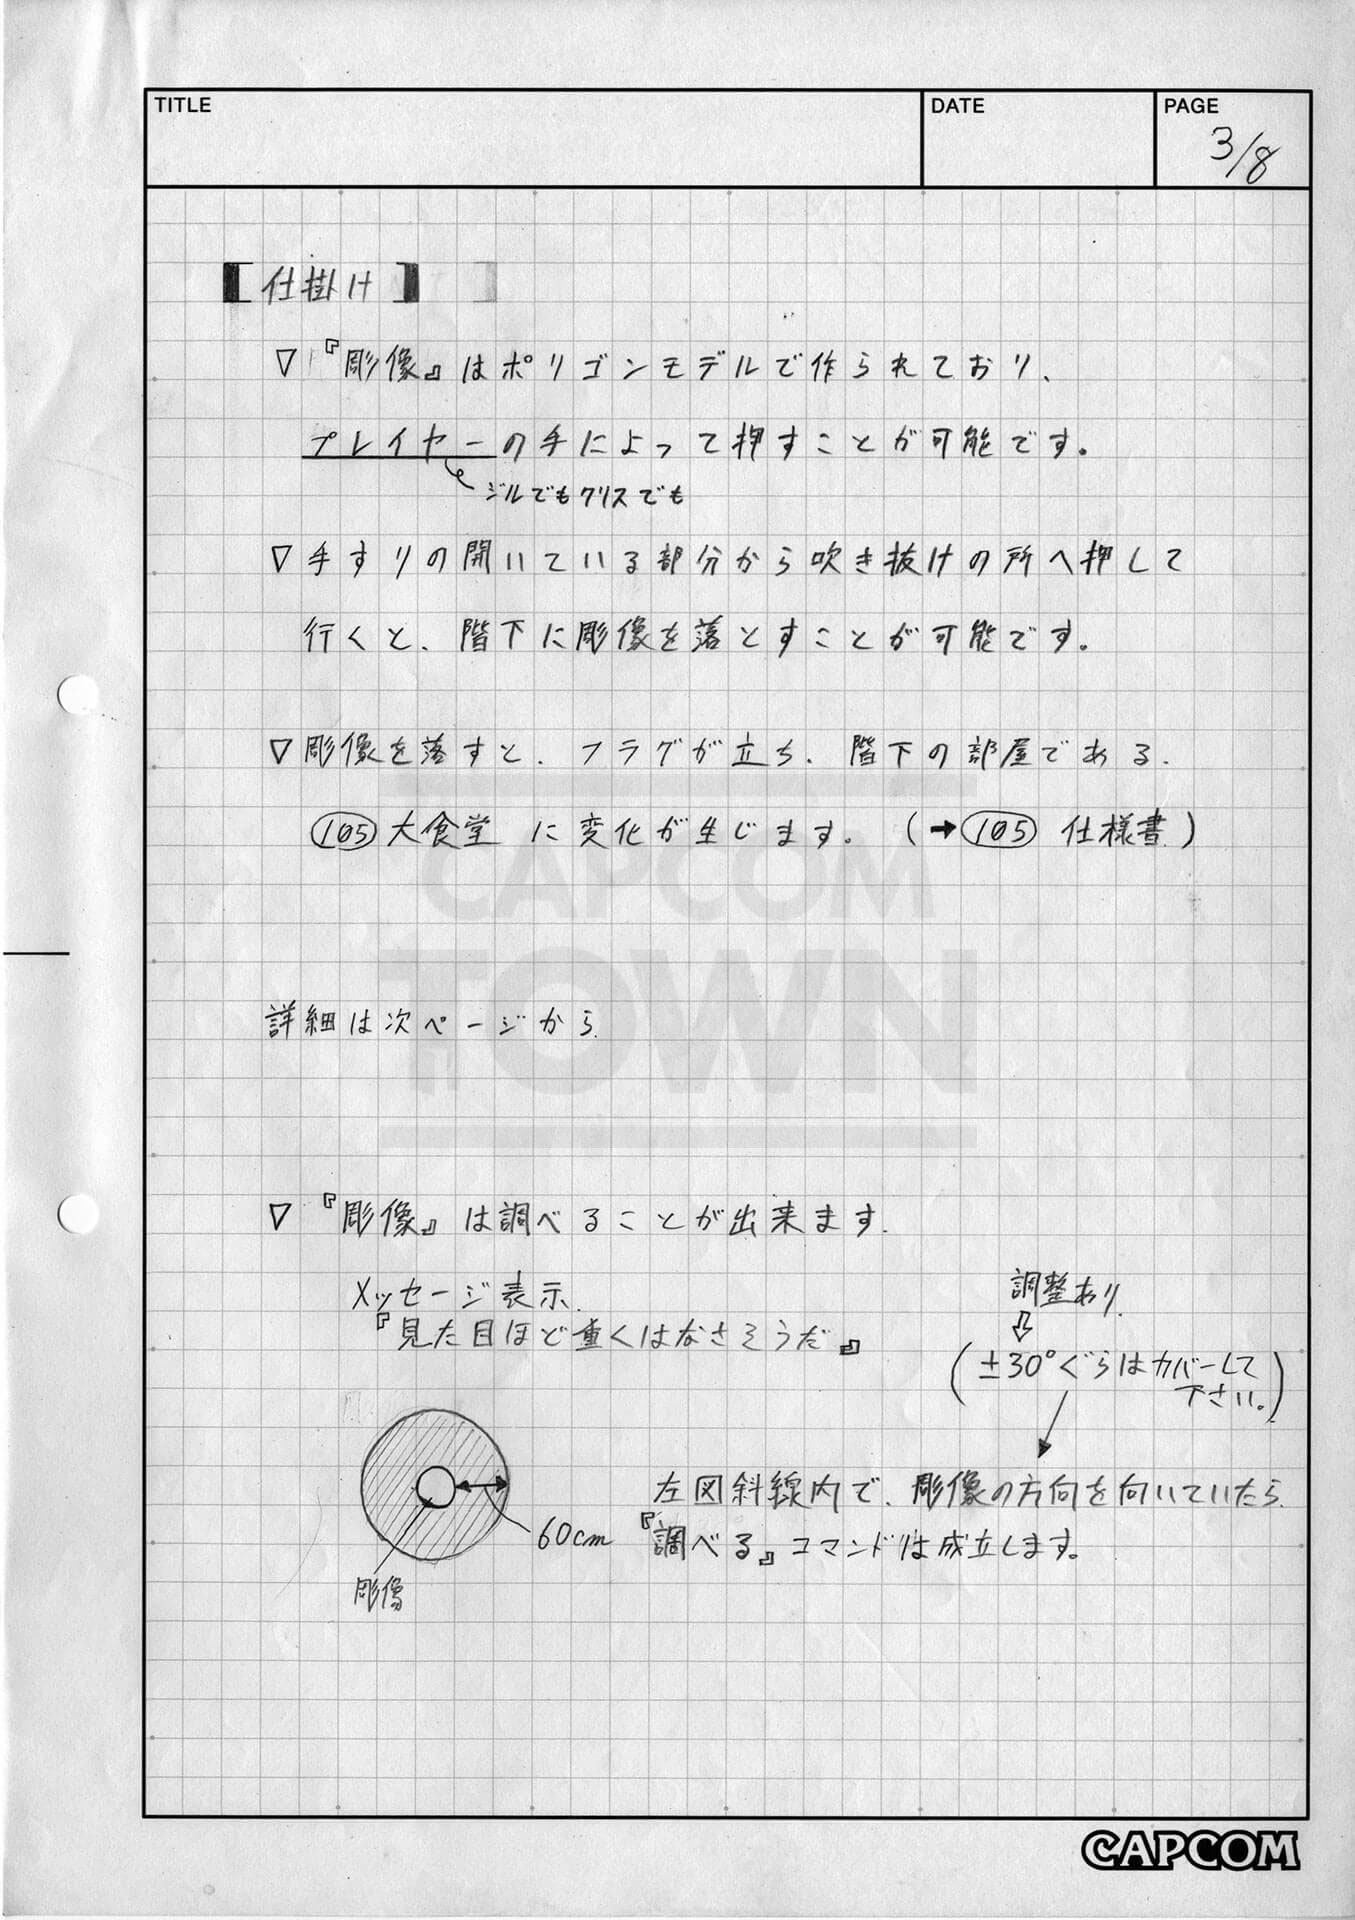 TITLE
DATE
PAGE
3/8
【仕掛け】
▽『彫像』はポリゴンモデルで作られており、
プレイヤーの手によって押すことが可能です。
ジルでもクリスでも
▽手すりの開いている部分から吹き抜けの所へ押して
行くと、階下に彫像を落とすことが可能です。
▽彫像を落すと、フラグが立ち、階下の部屋である、
105 大食堂 に変化が生じます。(➡105 仕様書)
CAPCOM
TOWN
詳細は次ページから
▽『彫像』は調べることが出来ます。
メッセージ表示
『見た目ほど重くはなさそうだ』
調整あり
(±30°ぐらはカバーして
下さい。)
60cm
彫像
左図斜線内で、彫像の方向を向いていたら
『調べる』コマンドは成立します。
CAPCOM